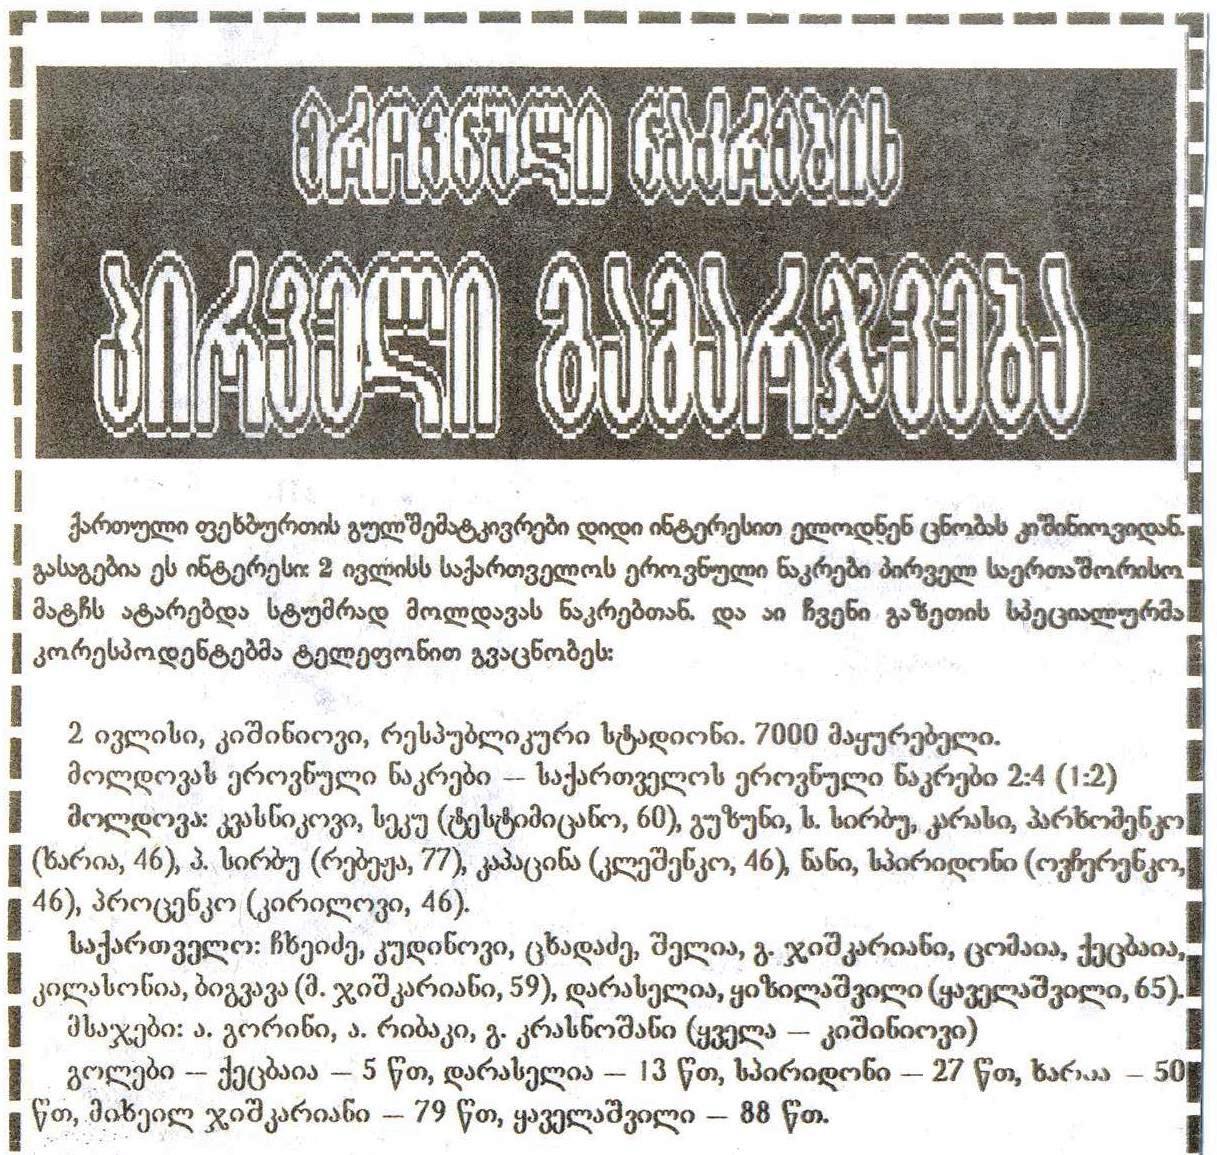 ეროვნული ნაკრების
პირველი გამარჯვება
ქართული ფეხბურთის გულშემატკივრები დიდი ინტერესით ელოდნენ ცნობას კიშინიოვიდან.
გასაგებია ეს ინტერესი: 2 ივლისს საქართველოს ეროვნული ნაკრები პირველ საერთაშორისო
მატჩს ატარებდა სტუმრად მოლდავას ნაკრებთან. და აი ჩვენი გაზეთის სპეციალურმა
კორესპოდენტებმა ტელეფონით გვაცნობეს:
2 ივლისი, კიშინიოვი, რესპუბლიკური სტადიონი. 7000 მაყურებელი.
მოლდოვას ეროვნული ნაკრები – საქართველოს ეროვნული ნაკრები 2:4 (1:2)
მოლდოვა: კვასნიკოვი, სეკუ (ტესტიმიცანო, 60), გუზუნი, ს. სირბუ, კარასი, პარხომენკო
(ხარია, 46), პ. სირბუ (რებეჟა, 77), კაპაცინა (კლეშენკო, 46), ნანი, სპირიდონი (ოვჩერენკო,
46), პროცენკო (კირილოვი, 46).
საქართველო: ჩხეიძე, კუდინოვი, ცხადაძე, შელია, გ. ჯიშკარიანი, ცომაია, ქეცბაია,
კილასონია, ბიგვავა (მ. ჯიშკარიანი, 59), დარასელია, ყიზილაშვილი (ყაველაშვილი, 65).
მსაჯები: ა. გორინი, ა. რიბაკი, გ. კრასნოშანი (ყველა – კიშინიოვი)
გოლები – ქეცბაია – 5 წთ, დარასელია – 13 წთ, სპირიდონი – 27 წთ, ხარია – 50
წთ, მიხეილ ჯიშკარიანი – 79 წთ, ყაველაშვილი – 88 წთ.